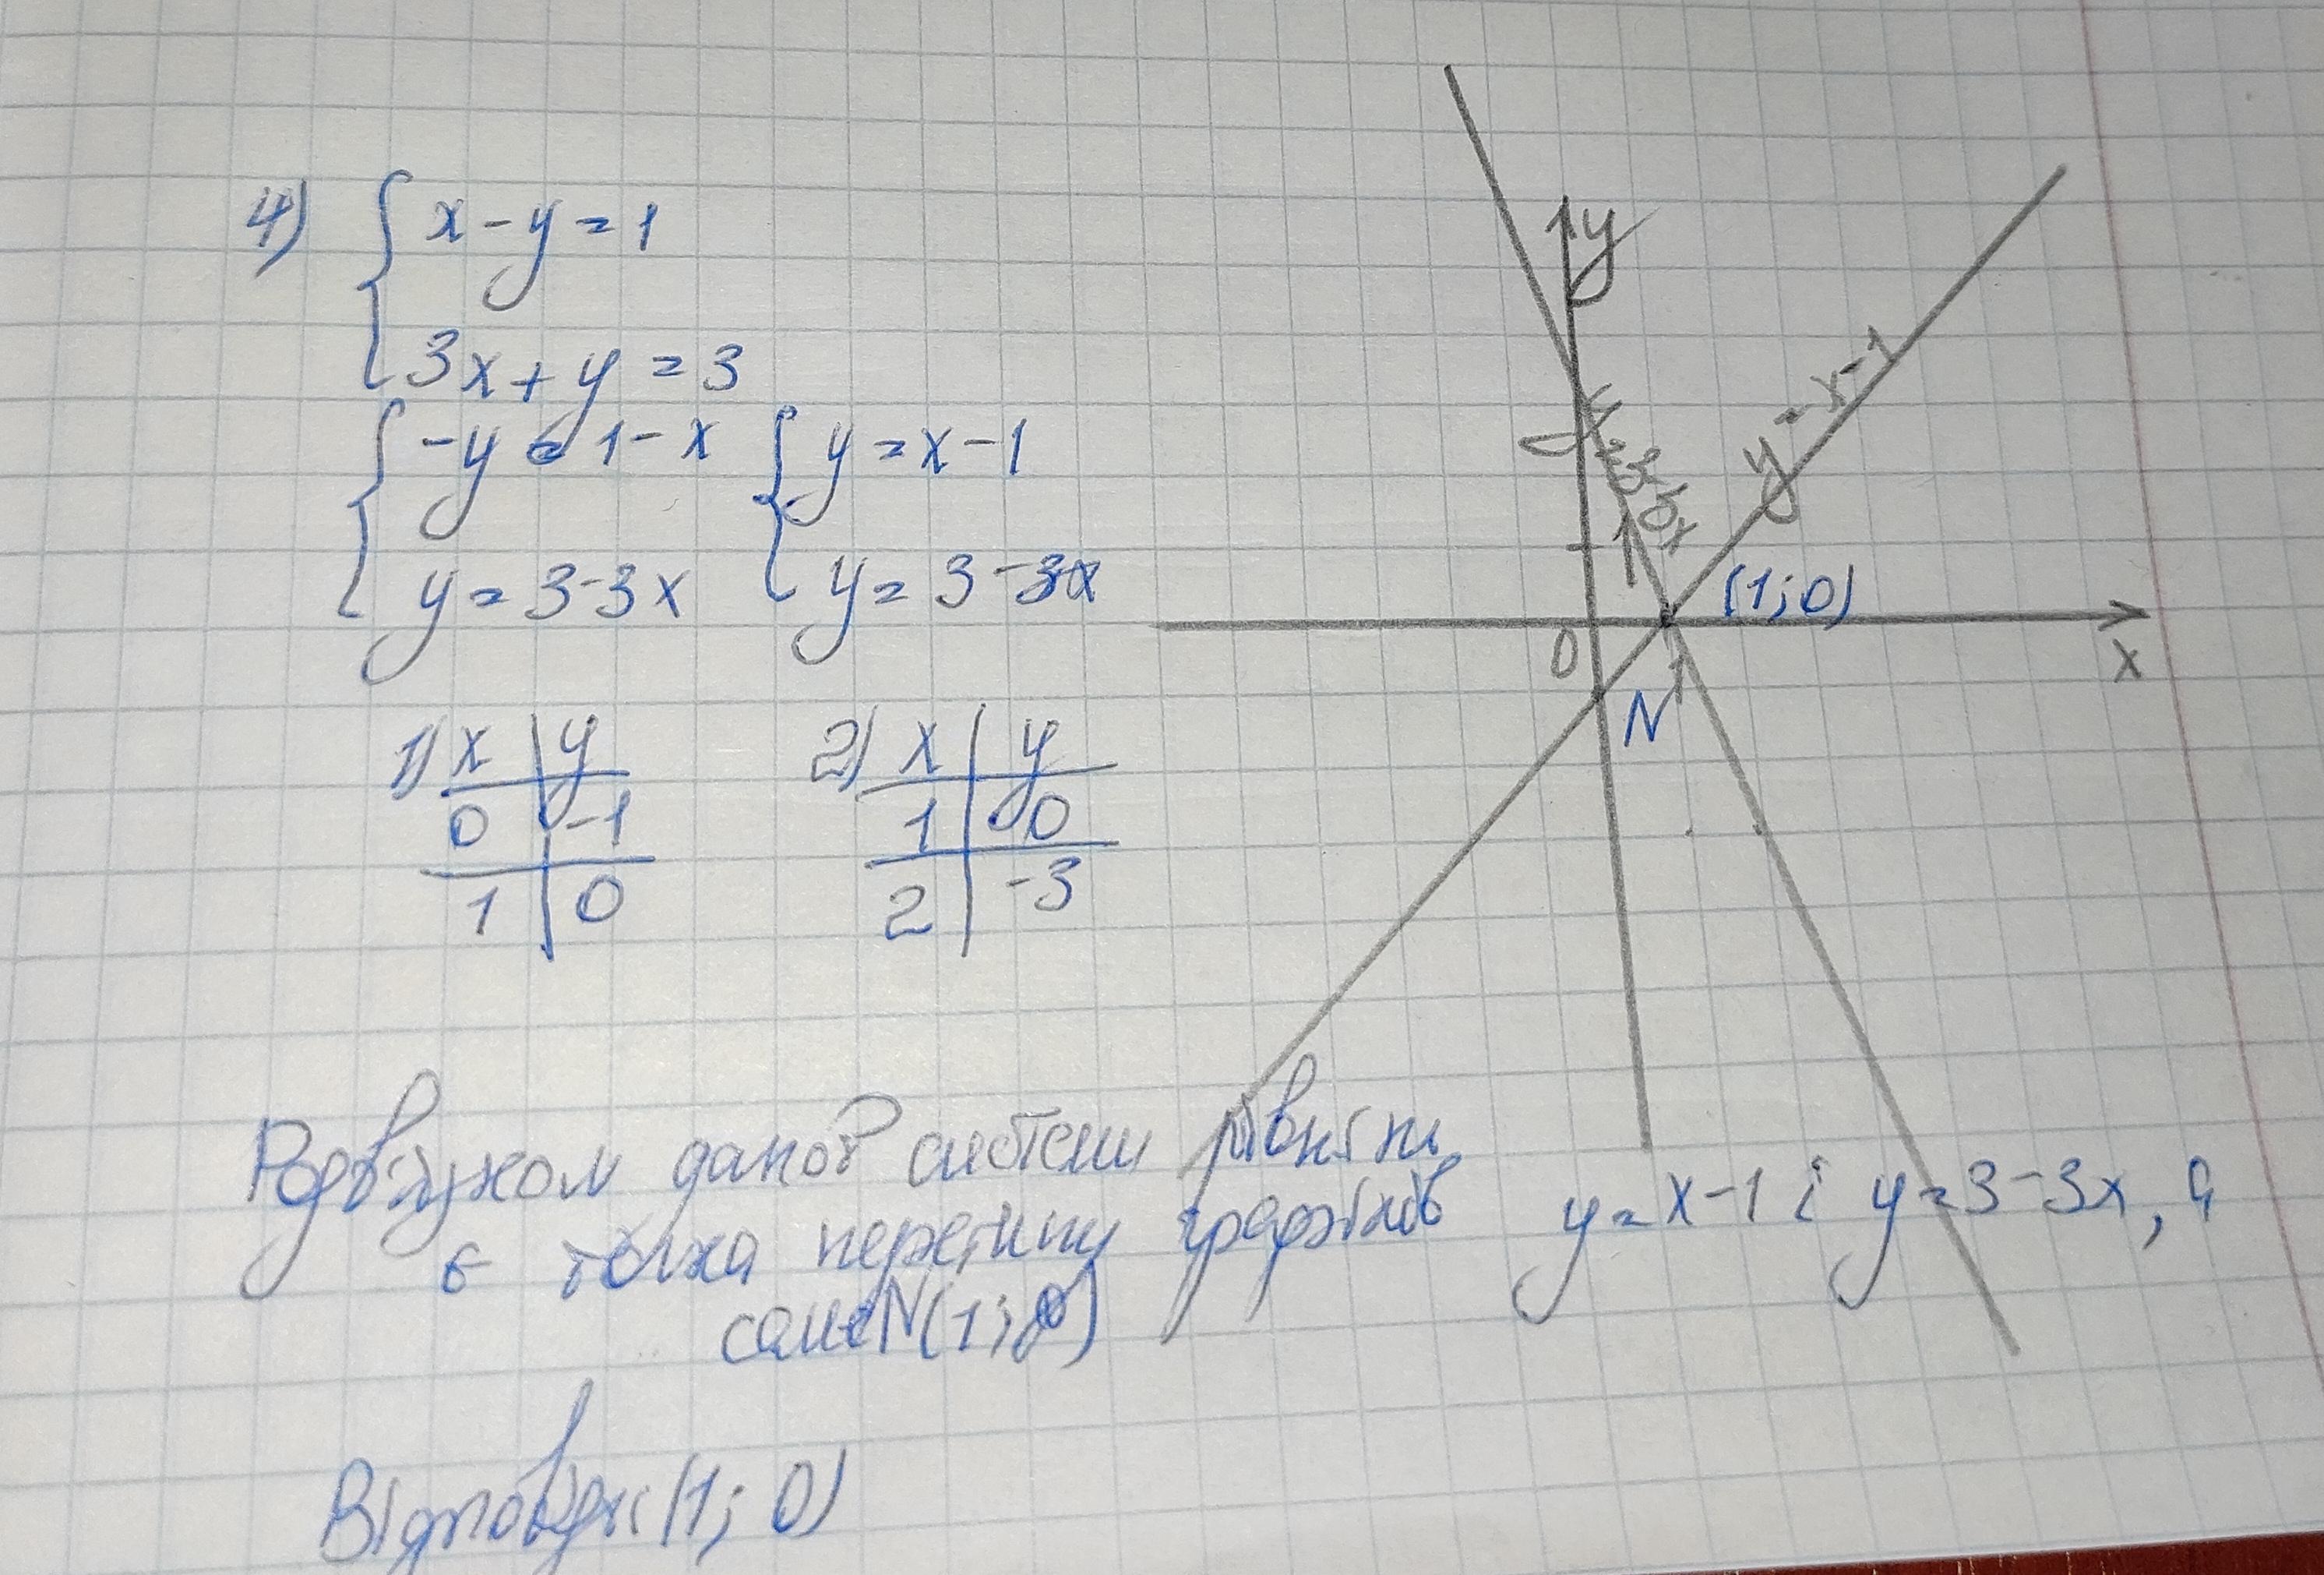 4) { x - y = 1
3x + y = 3
{ -y = 1 - x { y = x - 1
y = 3 - 3x y = 3 - 3x
1) x | y 2) x | y
0 | -1 1 | 0
1 | 0 2 | -3
y
y = x - 1
y = 3 - 3x
1
(1; 0)
0
1
x
N
Розв'язком даної системи рівнянь
є точка перетину графіків y = x - 1 і y = 3 - 3x, а
саме N(1; 0)
Відповідь: (1; 0)